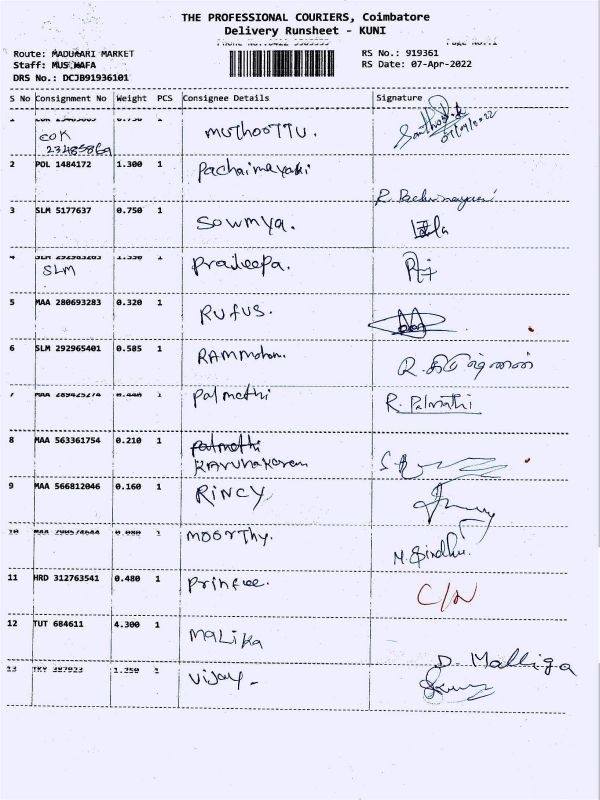 THE PROFESSIONAL COURIERS, Coimbatore
Delivery Runsheet - KUNI
Route: MADUKARI MARKET
Staff: MUSTAFA
DRS No.: DCJB91936101
RS No.: 919361
RS Date: 07-Apr-2022
S No Consignment No Weight PCS Consignee Details Signature
1 COK 23485869 0.750 1 muthoottu. Santhosh
2 POL 1484172 1.300 1 pachaimayaki
3 SLM 5177637 0.750 1 sowmya.
4 SLM 1.350 1 pradeepa.
5 MAA 280693283 0.320 1 RUFUS.
6 SLM 292965401 0.585 1 RAMmohan.
7 MAA 289425274 0.440 1 palmathi R. Palmathi
8 MAA 563361754 0.210 1 palmathi
karunakaran
9 MAA 566812046 0.160 1 RINCY
10 1 moorthy. M. Sindhu.
11 HRD 312763541 0.480 1 princee. C/N
12 TUT 684611 4.300 1 malika D. Malliga
13 TKY 387923 1.250 1 vijay -